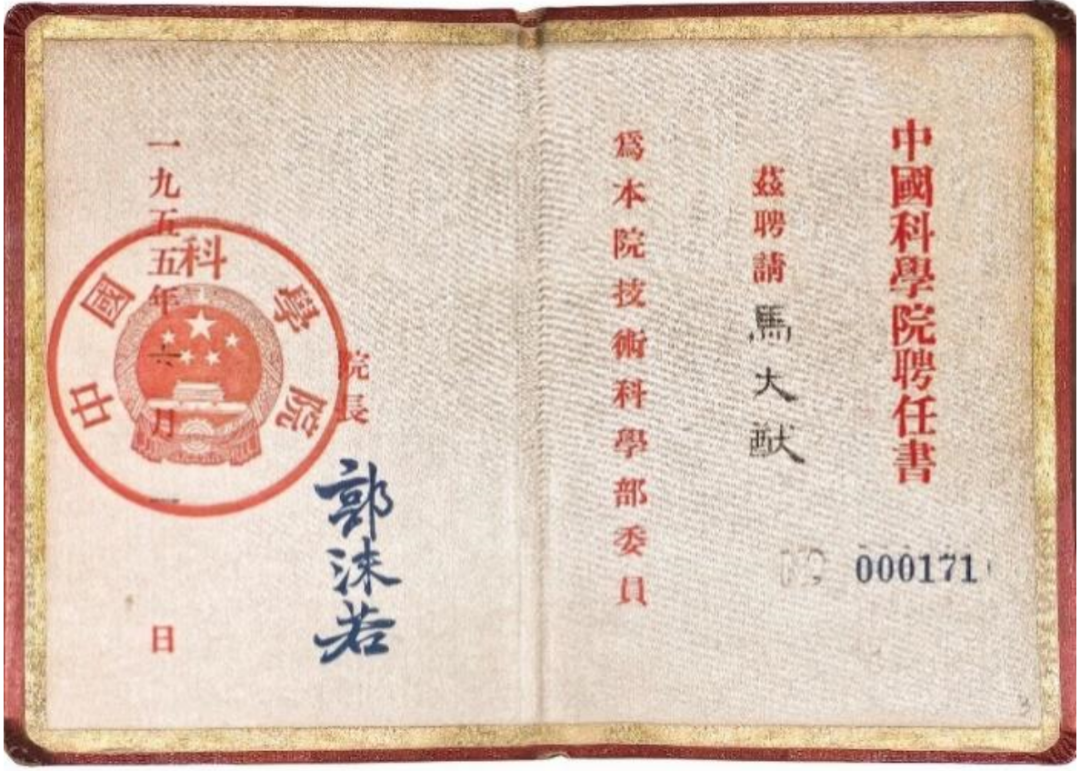 中國科學院聘任書
茲聘請馬大猷
爲本院技術科學部委員
000171
院長
郭沫若
一九五五年六月一日
中國科學院